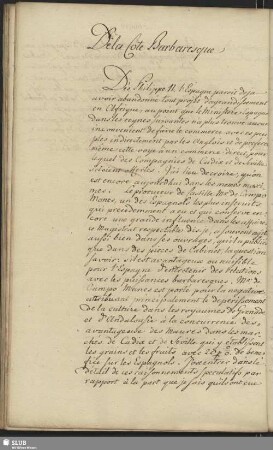 De la Côte Barbaresque.
Dès Philippe II. l'Espagne paroit deja
avoir abandonné tout projet d'agrandissement
en Afrique, au point que le Ministère Espagnol
dans les regnes suivants n'a plus trouvé aucun
inconvenient de faire le commerce avec ces peu-
ples indirectement par les Anglois et de préferer
même cette voye à un commerce direct, pour
lequel des Compagnies de Cadix et de Seville
J'ai lieu de croire, qu'on
est encore aujourdhui dans les memes
Le protecteur de Mr. de Campo
Manes, un des Espagnols les plus instruits
qui présidemment a eu et qui conserve en-
core une grande influence dans les affaires,
ce Magistrat respectable dis-je, a souvent agité
aussi bien dans ses ouvrages, qu'il a publiés
que dans des pièces de Cabinet, la question à
savoir, s'il est avantageux ou nuisible
pour l'Espagne d'entretenir des relations
avec les puissances barbaresques. Mr. de
Campo Manes est porté pour la negative
attribuant principalement le dépérissement
de la culture dans les royaumes de Grenade
et d'Andalousie à la concurrence des-
avantageuse des Maures dans les mar-
chés de Cadix et de Seville qui y établissent
les grains et les fruits avec 25 p% de bene-
fice sur les Espagnols. Sans entrer dans le
détail de ces raisonnements speculatifs par
rapport à la part que je sais qu'ils ont eue
SLUB